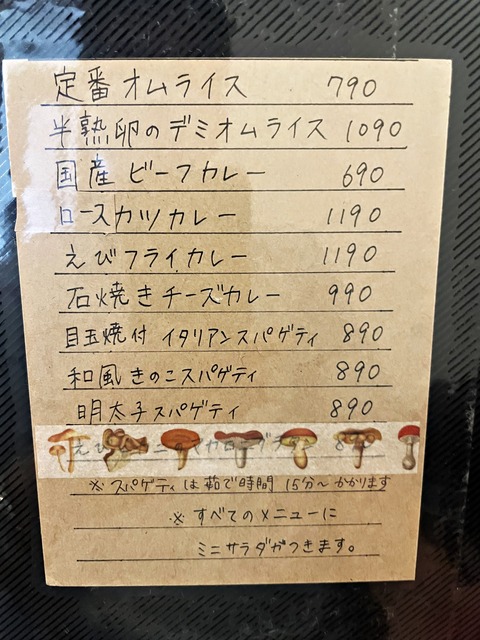 定番オムライス 790
半熟卵のデミオムライス 1090
国産ビーフカレー 690
ロースカツカレー 1190
えびフライカレー 1190
石焼きチーズカレー 990
目玉焼付 イタリアンスパゲティ 890
和風きのこスパゲティ 890
明太子スパゲティ 890
えび 890
※スパゲティは茹で時間 15分～かかります
※すべてのメニューに
ミニサラダがつきます。